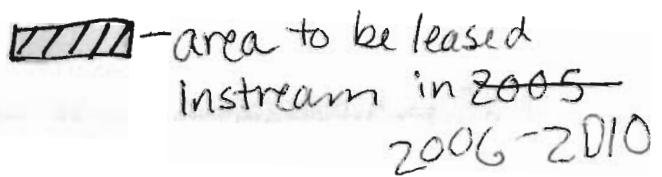 - area to be leased
instream in 2005
2006-2010